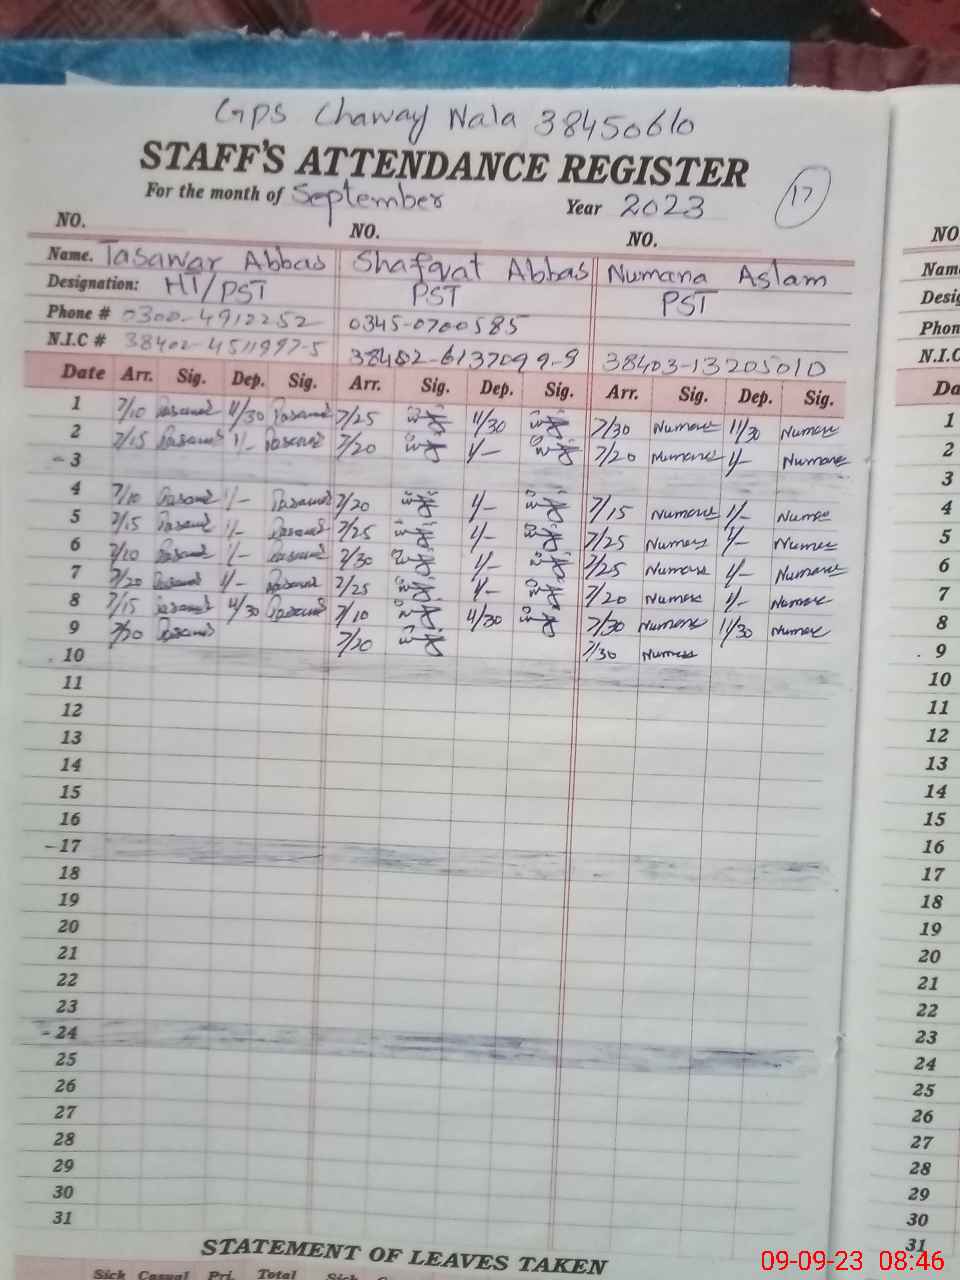 GPS Chaway Wala 38450610
STAFF'S ATTENDANCE REGISTER
For the month of September Year 2023 17
NO. NO. NO. NO
Name. Tasawar Abbas Shafqat Abbas Numana Aslam Nam
Designation: HT/PST PST PST Desig
Phone # 0300-4912252 0345-0700585 Phon
N.I.C # 38402-4511997-5 38402-6137099-9 38403-1320501D N.I.C
Date Arr. Sig. Dep. Sig. Arr. Sig. Dep. Sig. Arr. Sig. Dep. Sig. Da
1 7/10 11/30 7/25 11/30 7/30 Numana 11/30 Numana 1
2 7/15 1/- 7/20 1/- 7/20 Numana 1/- Numana 2
- 3 3
4 7/10 1/- 7/20 1/- 7/15 Numana 1/- Numana 4
5 7/15 1/- 7/25 1/- 7/25 Numana 1/- Numana 5
6 7/20 1/- 7/30 1/- 7/25 Numana 1/- Numana 6
7 7/20 1/- 7/25 1/- 7/20 Numana 1/- Numana 7
8 7/15 11/30 7/10 11/30 7/30 Numana 11/30 Numana 8
9 7/20 7/20 7/30 Numana 9
10 10
11 11
12 12
13 13
14 14
15 15
16 16
-17 17
18 18
19 19
20 20
21 21
22 22
23 23
- 24 24
25 25
26 26
27 27
28 28
29 29
30 30
31 31
STATEMENT OF LEAVES TAKEN
Sick Casual Pri. Total Sick
09-09-23 08:46